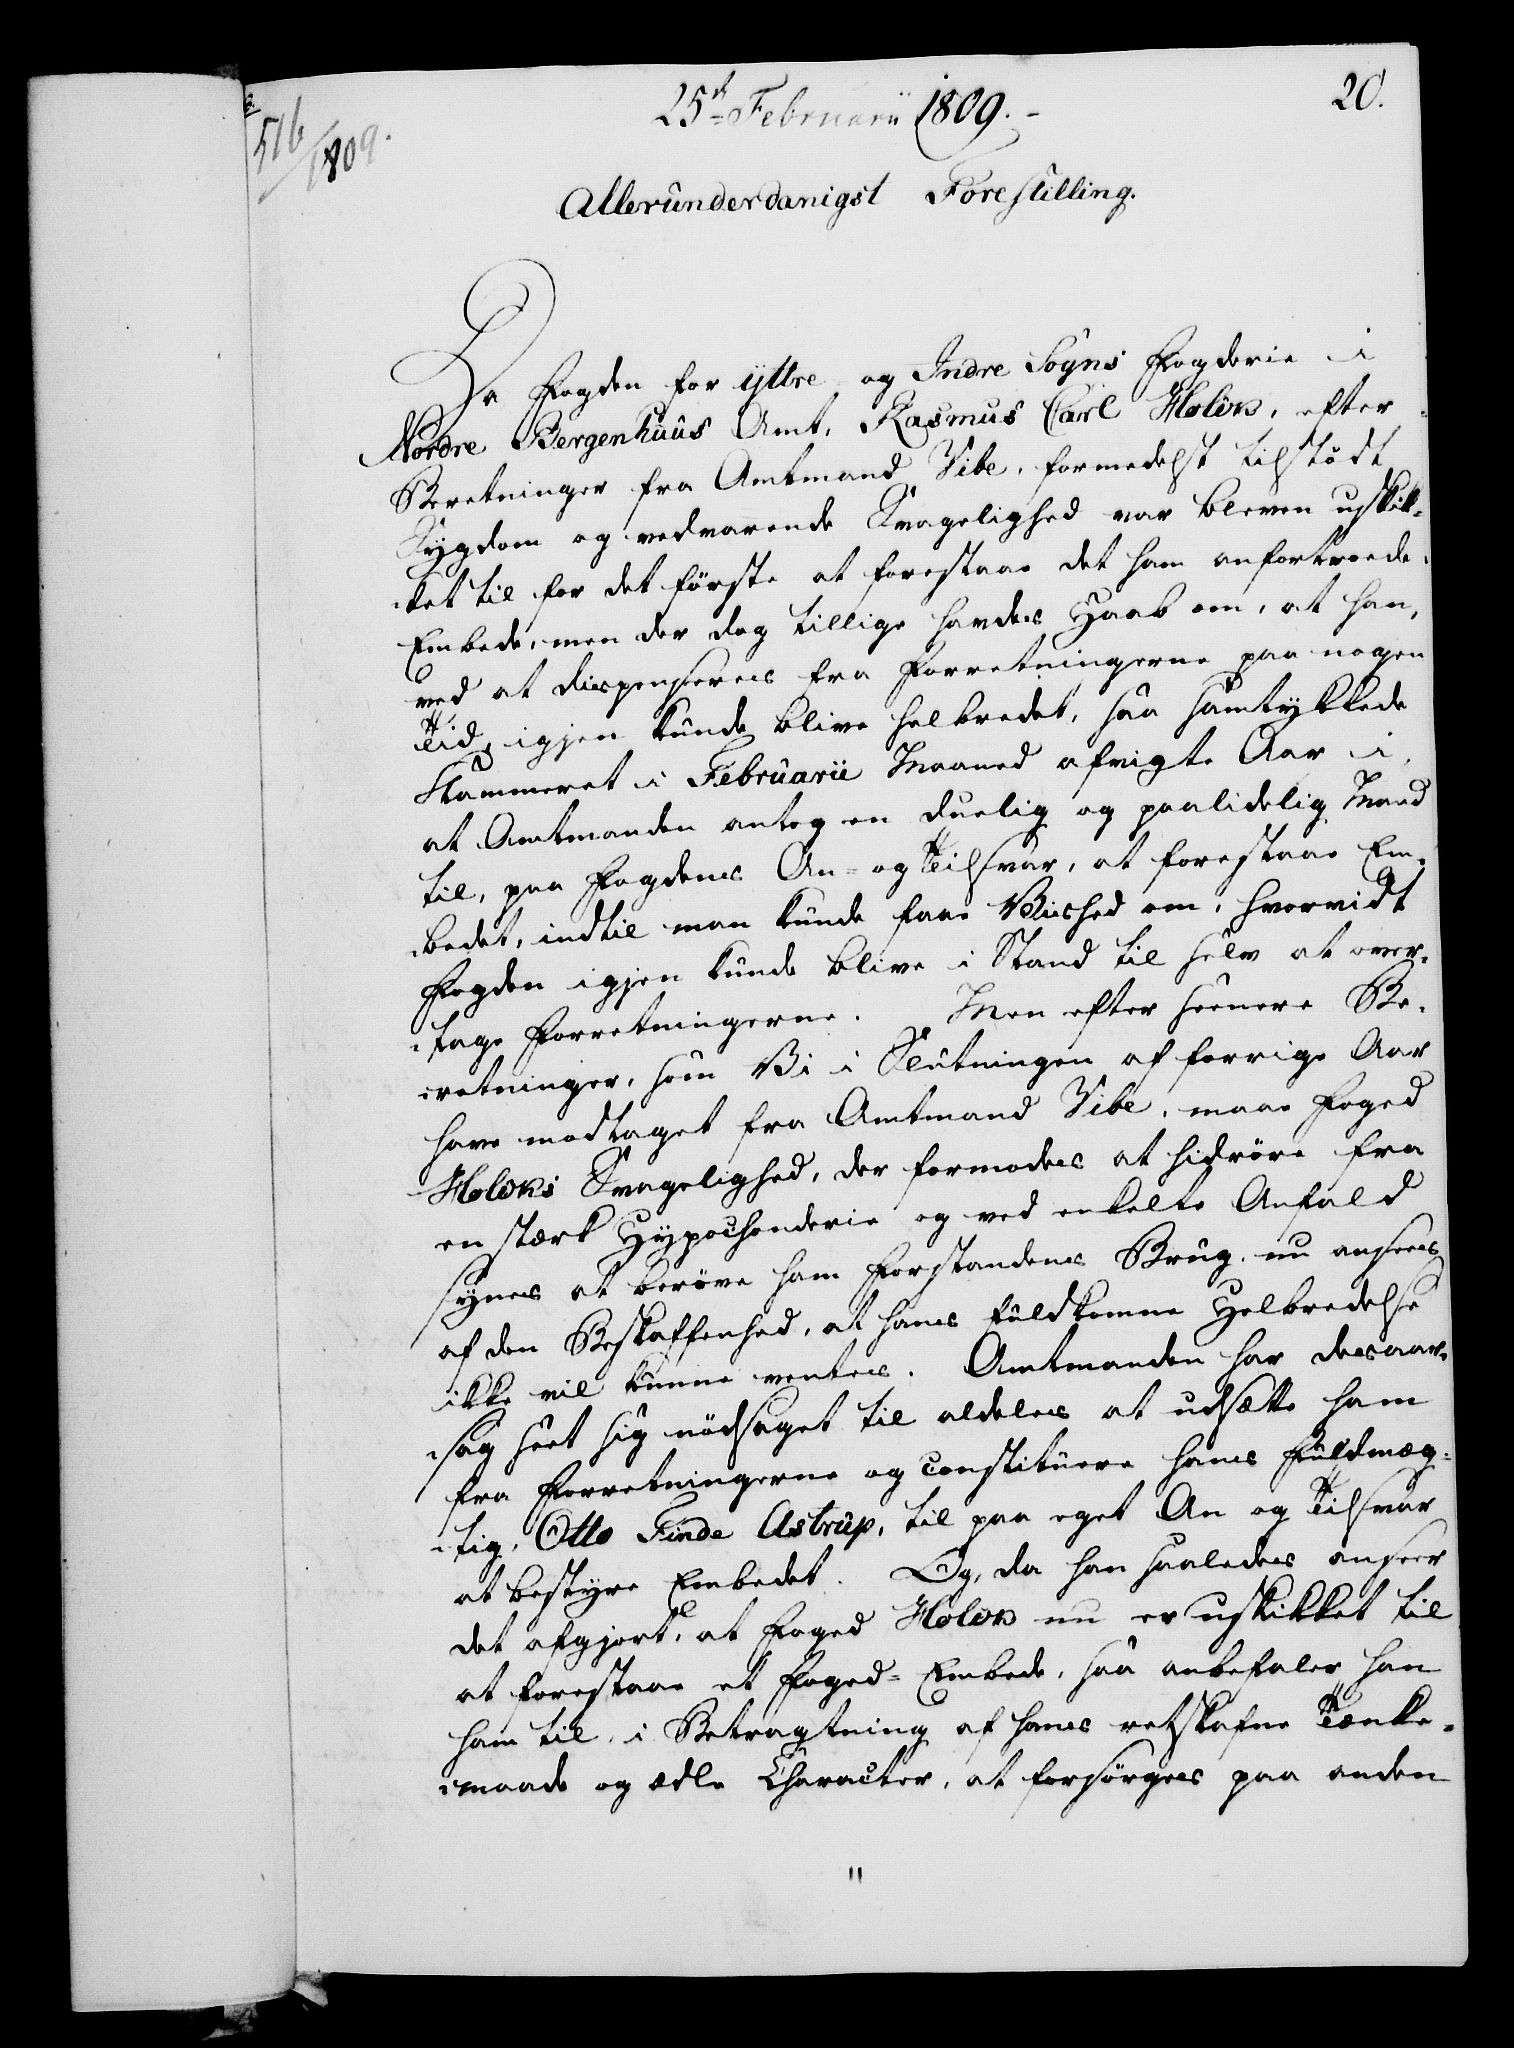 25d= Februarii 1809.-
20.
516/1809.
Allerunderdanigst Forestilling.
Da Fogden for yttre og Indre Sogns Fogderie i
Nordre Bergenhuus Amt, Rasmus Carl Holck, efter
Beretninger fra Amtmand Vibe, formedelst tilstødt
Sygdom og vedvarende Svagelighed var bleven uskik-
ket til for det første at forestaae det ham anfortroede
Embede, men der dog tillige havdes Haab om, at han,
ved at dispenseres fra Forretningerne paa nogen
Tid, igjen kunde blive helbredet, saa samtykkede
Kammeret i Februarii Maaned afvigte Aar i,
at Amtmanden antog en duelig og paalidelig Mand
til, paa Fogdens An- og Tilsvar, at forestaae Em-
bedet, indtil man kunde faae Vished om, hvorvidt
Fogden igjen kunde blive i Stand til selv at over-
tage Forretningerne. Men efter seenere Be-
retninger, som Vi i Slutningen af forrige Aar
have modtaget fra Amtmand Vibe, maae Foged
Holcks Svagelighed, der formodes at hidrøre fra
en stærk Hypochonderie og ved enkelte Anfald
synes at berøve ham Forstandens Brug, nu ansees
af den Beskaffenhed, at hans fuldkomne Helbredelse
ikke vil kunne ventes. Amtmanden har desaar-
sag seet sig nødsaget til aldeles at udsætte ham
fra Forretningerne og constituere hans Fuldmæg-
tig, Otto Finde Astrup, til paa eget An og Tilsvar
at bestyre Embedet. Og, da han saaledes anseer
det afgjort, at Foged Holck nu er uskikket til
at forestaae et Foged-Embede, saa anbefaler han
ham til, i Betragtning af hans retskafne Tænke-
maade og ædle Character, at forsørges paa anden
"